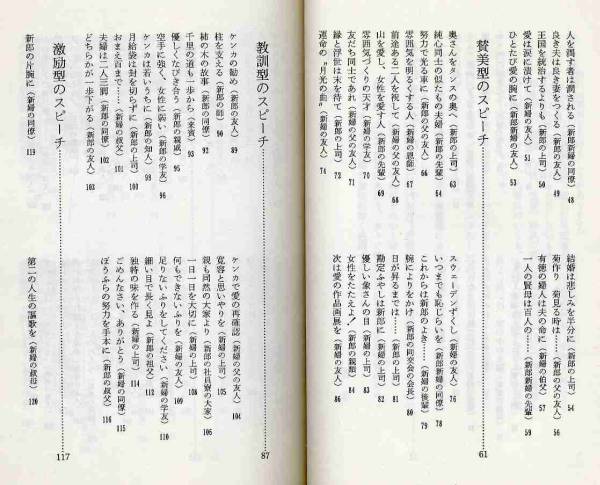 人を潤す者は潤される（新郎新婦の同僚）48
良き夫は良き妻をつくる（新郎の友人）49
王国を統治するよりも（新郎の上司）50
愛は涙に漬けて（新婦の友人）51
ひとたび愛の腕に（新郎の友人）53
結婚は悲しみを半分に（新郎の上司）54
菊作り 菊見る時は…（新郎の父の友人）56
有徳の婦人は夫の命に（新婦の伯父）57
一人の賢母は百人の……（新郎新婦の先輩）59
賛美型のスピーチ……61
奥さんをタンスの奥へ（新郎の上司）63
純心同士の似たもの夫婦（新郎の先輩）64
努力で光る率に（新郎の父の友人）66
雰囲気を明るくする人（新婦の恩師）67
前途ある二人を祝して（新婦の父の友人）68
山を愛し、女性を愛す人（新郎の先輩）69
雰囲気づくりの天才（新婦の学友）70
友だち同士であれ（新婦の父の友人）71
縁と浮世は末を待て（新郎の上司）73
運命の〝月光の曲〟（新婦の友人）74
スウェーデンずくし（新婦の友人）76
いつまでも恥じらいを（新郎新婦の同僚）78
これからは新郎のよき…（新婦の後輩）79
腕によりをかけ（新郎の同交会の会長）80
日が昇るまでは……（新郎の上司）81
勘定ふやしは新郎に（新郎の上司）82
優しい象さんの目（新婦の上司）83
女性をたたえよ！（新郎の親類）84
次は愛の作品画展を（新婦の友人）86
教訓型のスピーチ……87
ケンカの勧め（新郎の友人）89
柱を支える（新郎の師）90
柿の木の故事（新郎の同僚）92
千里の道も一歩から（来賓）93
優しくなびき合う（新郎の親戚）95
空手に強く、女性に弱い（新郎の学友）96
ケンカは若いうちに（新郎の知人）98
月給袋は封を切らずに（新郎の上司）100
おまえ百まで……（新婦の叔父）101
夫婦は二人三脚（新郎の同僚）102
どちらかが一歩下がる（新郎の友人）103
ケンカで愛の再確認（新婦の父の友人）104
寛容と思いやりを（新郎の上司）105
親も同然の大家より（新郎の社員寮の大家）106
一日一日を大切に（新婦の上司）108
何もできないふりを（新婦の友人）109
足りないふりをしてください（新婦の学友）110
細い目で長く見よ（新郎の祖父）112
独特の味を作る（新婦の上司）114
ごめんなさい、ありがとう（新婦の同僚）115
ぼうふらの努力を手本に（新郎の叔父）116
激励型のスピーチ……117
新郎の片腕に（新婦の同僚）119
第二の人生の謳歌を（新婦の叔母）120